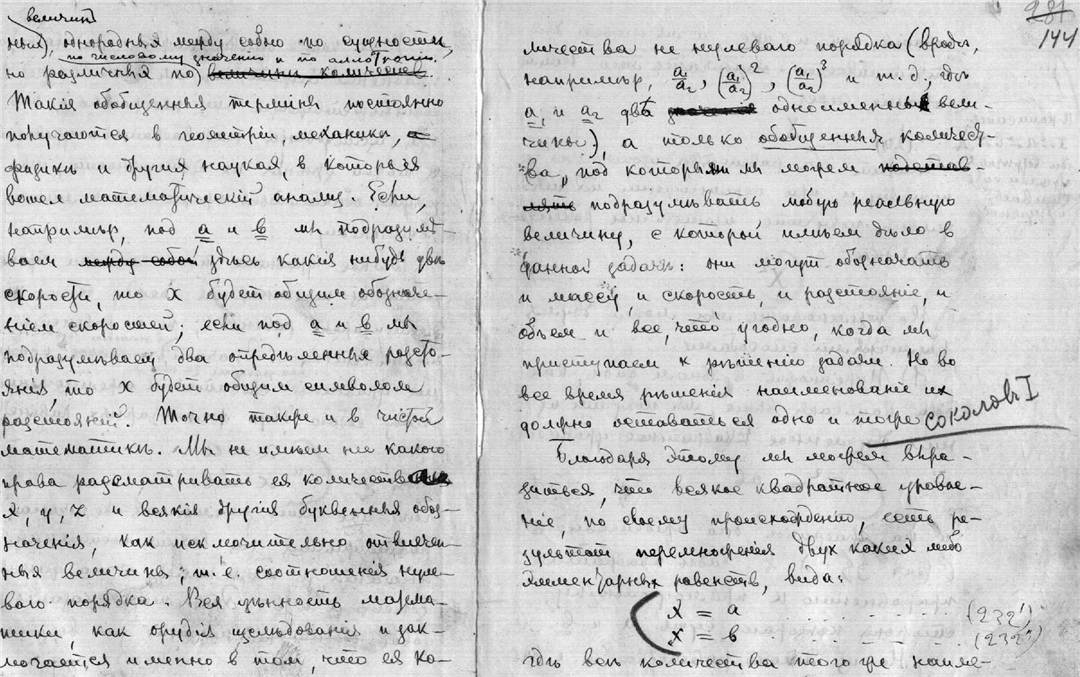 величин
ныя), однородныя между собою по сущности,
по числовому значению и по аллотропии.
но различныя по величинѣ, количеств
Такія обобщенныя термины постоянно
получаются в геометріи, механикѣ,
физикѣ и другия наукая, в которыя
вошел математическій анализ. Если,
напримѣр, под a и b мы подразумѣ-
ваем между собой здѣсь какія нибудь двѣ
скорости, то X будет общим обозначе-
ніем скоростей; если под a и b мы
подразумѣваем два опредѣленныя разсто-
янія, то X будет общим символом
разстояній. Точно также и в чистой
математикѣ. Мы не имѣем ни какого
права разсматривать ея количества
X, y, z и всякія другія буквенныя обоз-
наченія, как исключительно отвлечен-
ныя величины; т. е. соотношенія нуле-
ваго порядка. Вся цѣнность матема-
тики, как орудія изслѣдованія и зак-
лючается именно в том, что ея ко-
281
144
личества не нулеваго порядка (вродѣ,
напримѣр, a₁/a₂, (a₁/a₂)², (a₁/a₂)³ и т. д., гдѣ
a₁ и a₂ двѣ одноименныя вели-
чины), а только обобщенныя количест-
ва, под которыми мы можем подстав-
лять подразумѣвать любую реальную
величину, с которой имѣем дѣло в
данной задачѣ: они могут обозначать
и массу, и скорость, и разстояніе, и
объем и все, что угодно, когда мы
приступаем к рѣшенію задачи. Но во
все время рѣшенія наименованіе их
должно оставаться одно и тоже
Соколовъ I
Благодаря этому мы можем выра-
зиться, что всякое квадратное уравне-
ніе, по своему происхожденію, есть ре-
зультат перемноженія двух каких либо
элементарных равенств, вида:
X = a . . . . . . . . (232')
X = b . . . . . . . . (232'')
гдѣ всѣ количества того же наиме-